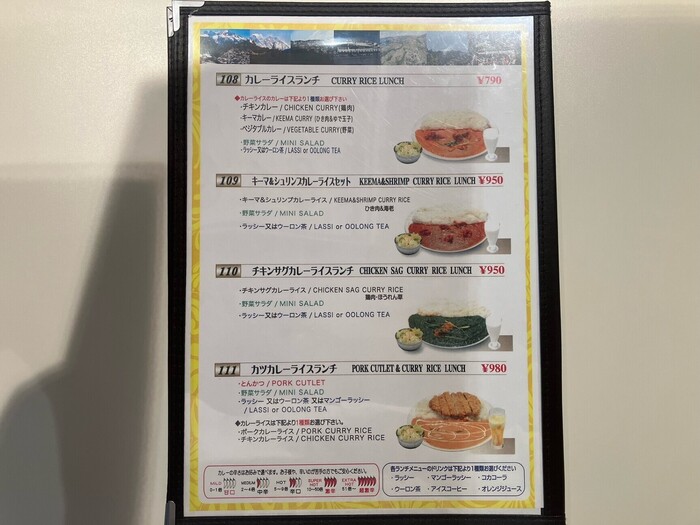 108 カレーライスランチ CURRY RICE LUNCH ¥790
◆カレーライスのカレーは下記より1種類お選び下さい
・チキンカレー / CHICKEN CURRY(鶏肉)
・キーマカレー / KEEMA CURRY (ひき肉&ゆで玉子)
・ベジタブルカレー / VEGETABLE CURRY(野菜)
・野菜サラダ / MINI SALAD
・ラッシー又はウーロン茶 / LASSI or OOLONG TEA
109 キーマ&シュリンプカレーライスセット KEEMA&SHRIMP CURRY RICE LUNCH ¥950
・キーマ&シュリンプカレーライス / KEEMA&SHRIMP CURRY RICE
ひき肉&海老
・野菜サラダ / MINI SALAD
・ラッシー又はウーロン茶 / LASSI or OOLONG TEA
110 チキンサグカレーライスランチ CHICKEN SAG CURRY RICE LUNCH ¥950
・チキンサグカレーライス / CHICKEN SAG CURRY RICE
鶏肉・ほうれん草
・野菜サラダ / MINI SALAD
・ラッシー又はウーロン茶 / LASSI or OOLONG TEA
111 カツカレーライスランチ PORK CUTLET & CURRY RICE LUNCH ¥980
・とんかつ / PORK CUTLET
・野菜サラダ / MINI SALAD
・ラッシー 又はウーロン茶 又はマンゴーラッシー
/ LASSI or OOLONG TEA
◆カレーライスは下記より1種類お選び下さい。
・ポークカレーライス / PORK CURRY RICE
・チキンカレーライス / CHICKEN CURRY RICE
カレーの辛さはお好みで選べます。お子様や、辛いのが苦手の方でもご安心ください。
MILD 0~1番 甘口 MEDIUM 2~4番 中辛 HOT 5~9番 辛口 SUPER HOT 10~50番 激辛 EXTRA HOT 51番~ 超激辛
各ランチメニューのドリンクは下記より1種類お選びください
・ラッシー ・マンゴーラッシー ・コカコーラ
・ウーロン茶 ・アイスコーヒー ・オレンジジュース